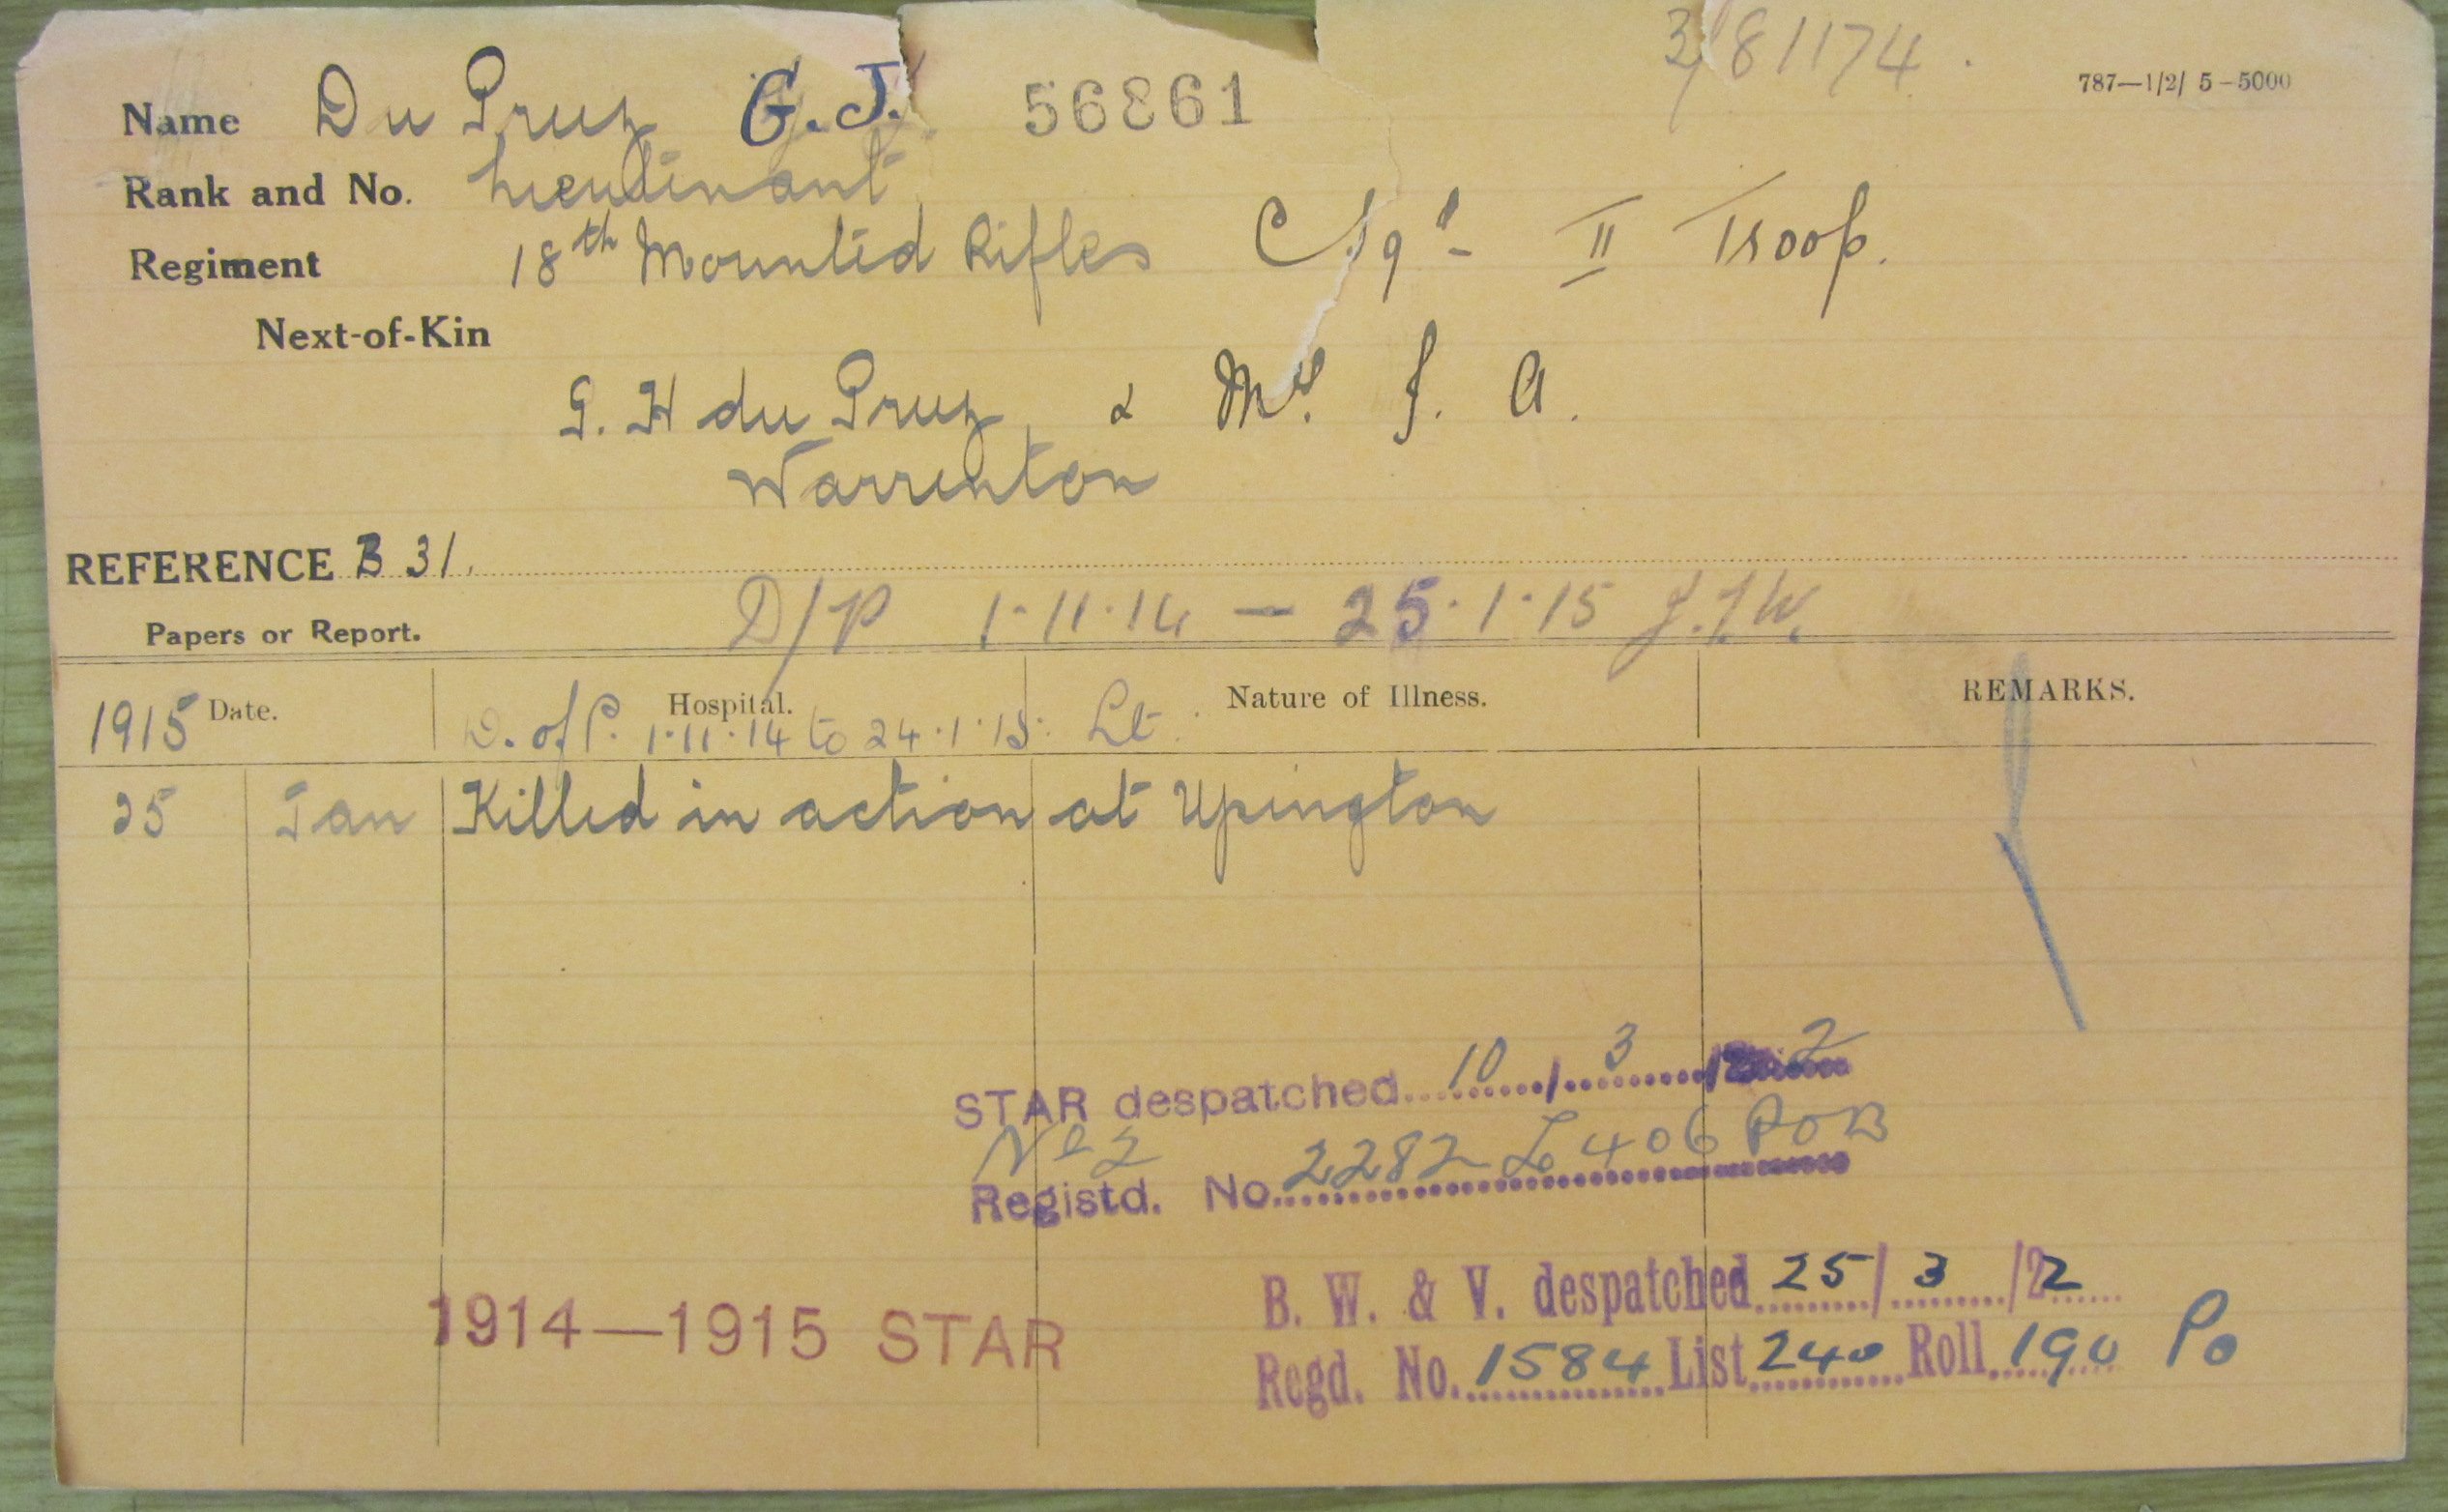 3/81174.
787—1/2/ 5–5000
Name Du Preez G.J. 56861
Rank and No. Lieutenant
Regiment 18th Mounted Rifles C Sqd- II Troop.
Next-of-Kin
G. H du Preez & Mrs. J. A.
Warrenton
REFERENCE B 31.
D/P 1·11·14 — 25·1·15
Papers or Report.
1915 Date. Hospital. Nature of Illness. REMARKS.
D. of P. 1·11·14 to 24·1·15: Lt.
25 Jan Killed in action at Upington
STAR despatched 10/3/22
No 2
Registd. No. 2282 L 406 POB
1914—1915 STAR
B. W. & V. despatched 25/3/22
Regd. No. 1584 List 240 Roll 190 Po